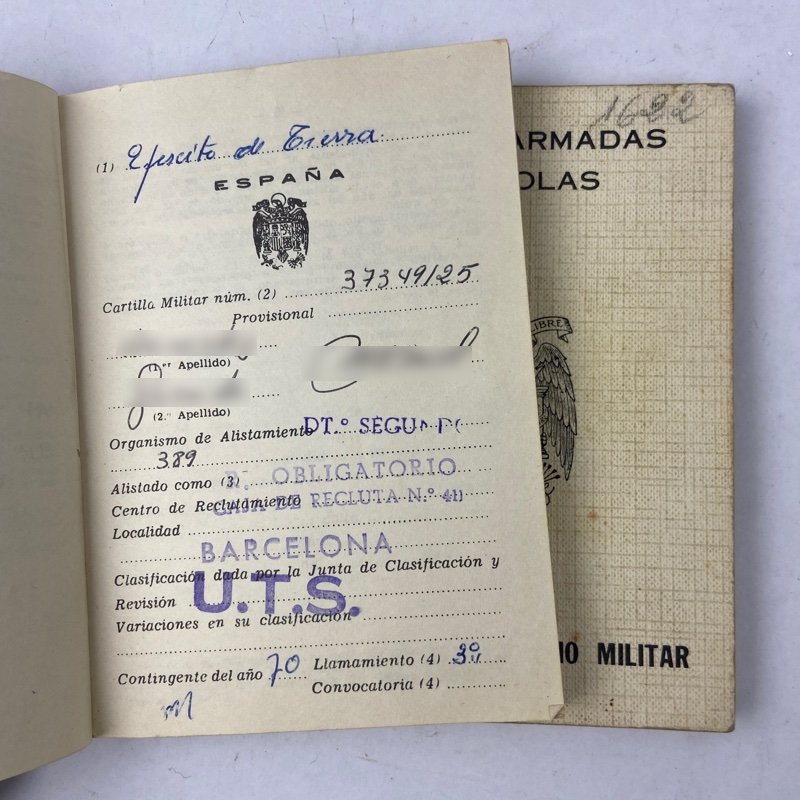 (1) Ejército de Tierra
ESPAÑA
Cartilla Militar núm. (2) 37349/25
Provisional
(1er Apellido)
(2.º Apellido)
Organismo de Alistamiento DT.º SEGUNDO
389
Alistado como (3) R. OBLIGATORIO
Centro de Reclutamiento CAJA DE RECLUTA N.º 411
Localidad
BARCELONA
Clasificación dada por la Junta de Clasificación y
Revisión U.T.S.
Variaciones en su clasificación
Contingente del año 70 Llamamiento (4) 3º
Convocatoria (4)
1622
ARMADAS
OLAS
LIBRE
IO MILITAR